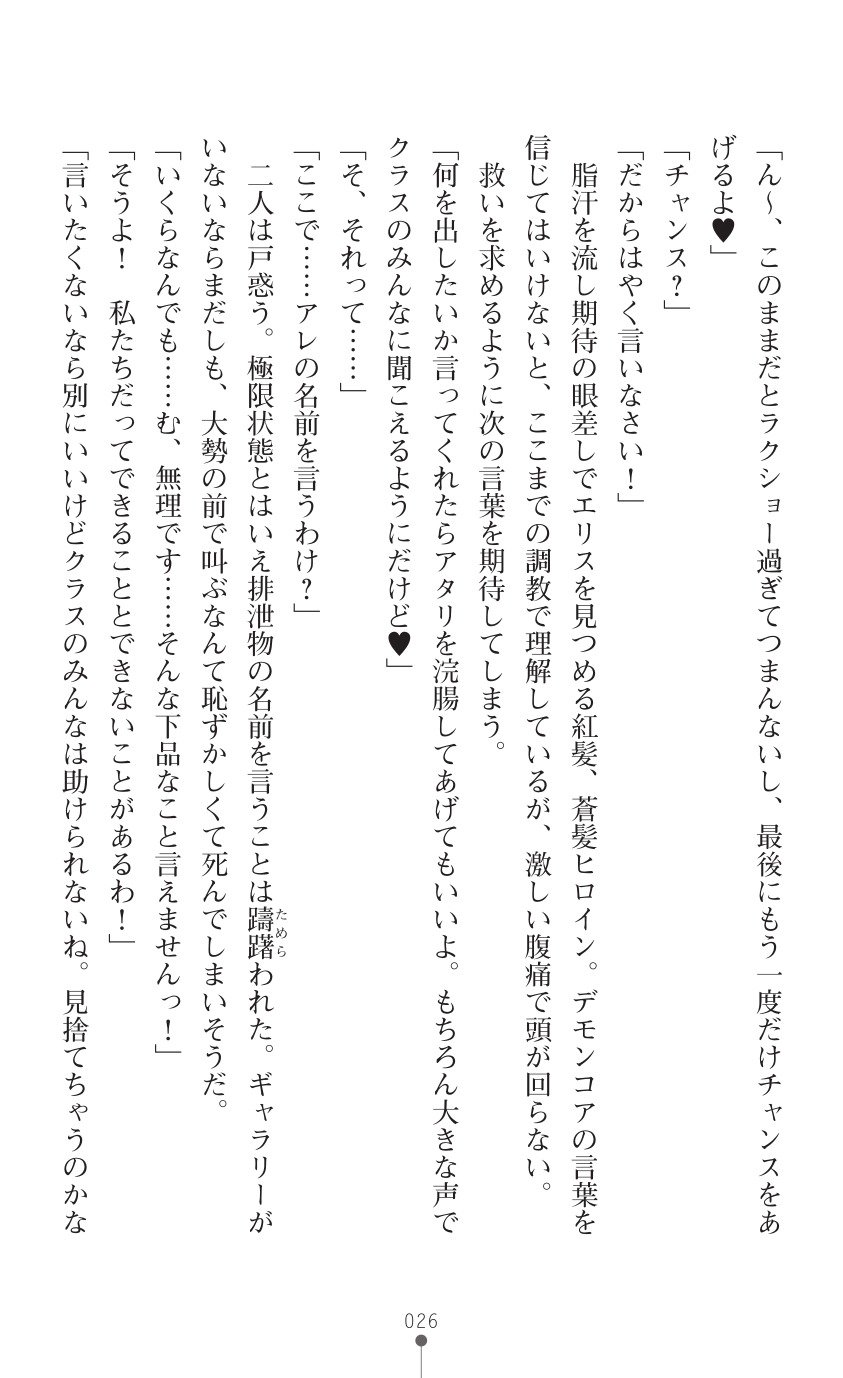 「ん～、このままだとラクショー過ぎてつまんないし、最後にもう一度だけチャンスをあ
げるよ♥」
「チャンス？」
「だからはやく言いなさい！」
脂汗を流し期待の眼差しでエリスを見つめる紅髪、蒼髪ヒロイン。デモンコアの言葉を
信じてはいけないと、ここまでの調教で理解しているが、激しい腹痛で頭が回らない。
救いを求めるように次の言葉を期待してしまう。
「何を出したいか言ってくれたらアタリを浣腸してあげてもいいよ。もちろん大きな声で
クラスのみんなに聞こえるようにだけど♥」
「そ、それって……」
「ここで……アレの名前を言うわけ？」
二人は戸惑う。極限状態とはいえ排泄物の名前を言うことは躊躇われた。ギャラリーが
ためら
いないならまだしも、大勢の前で叫ぶなんて恥ずかしくて死んでしまいそうだ。
「いくらなんでも……む、無理です……そんな下品なこと言えませんっ！」
「そうよ！　私たちだってできることとできないことがあるわ！」
「言いたくないなら別にいいけどクラスのみんなは助けられないね。見捨てちゃうのかな
026